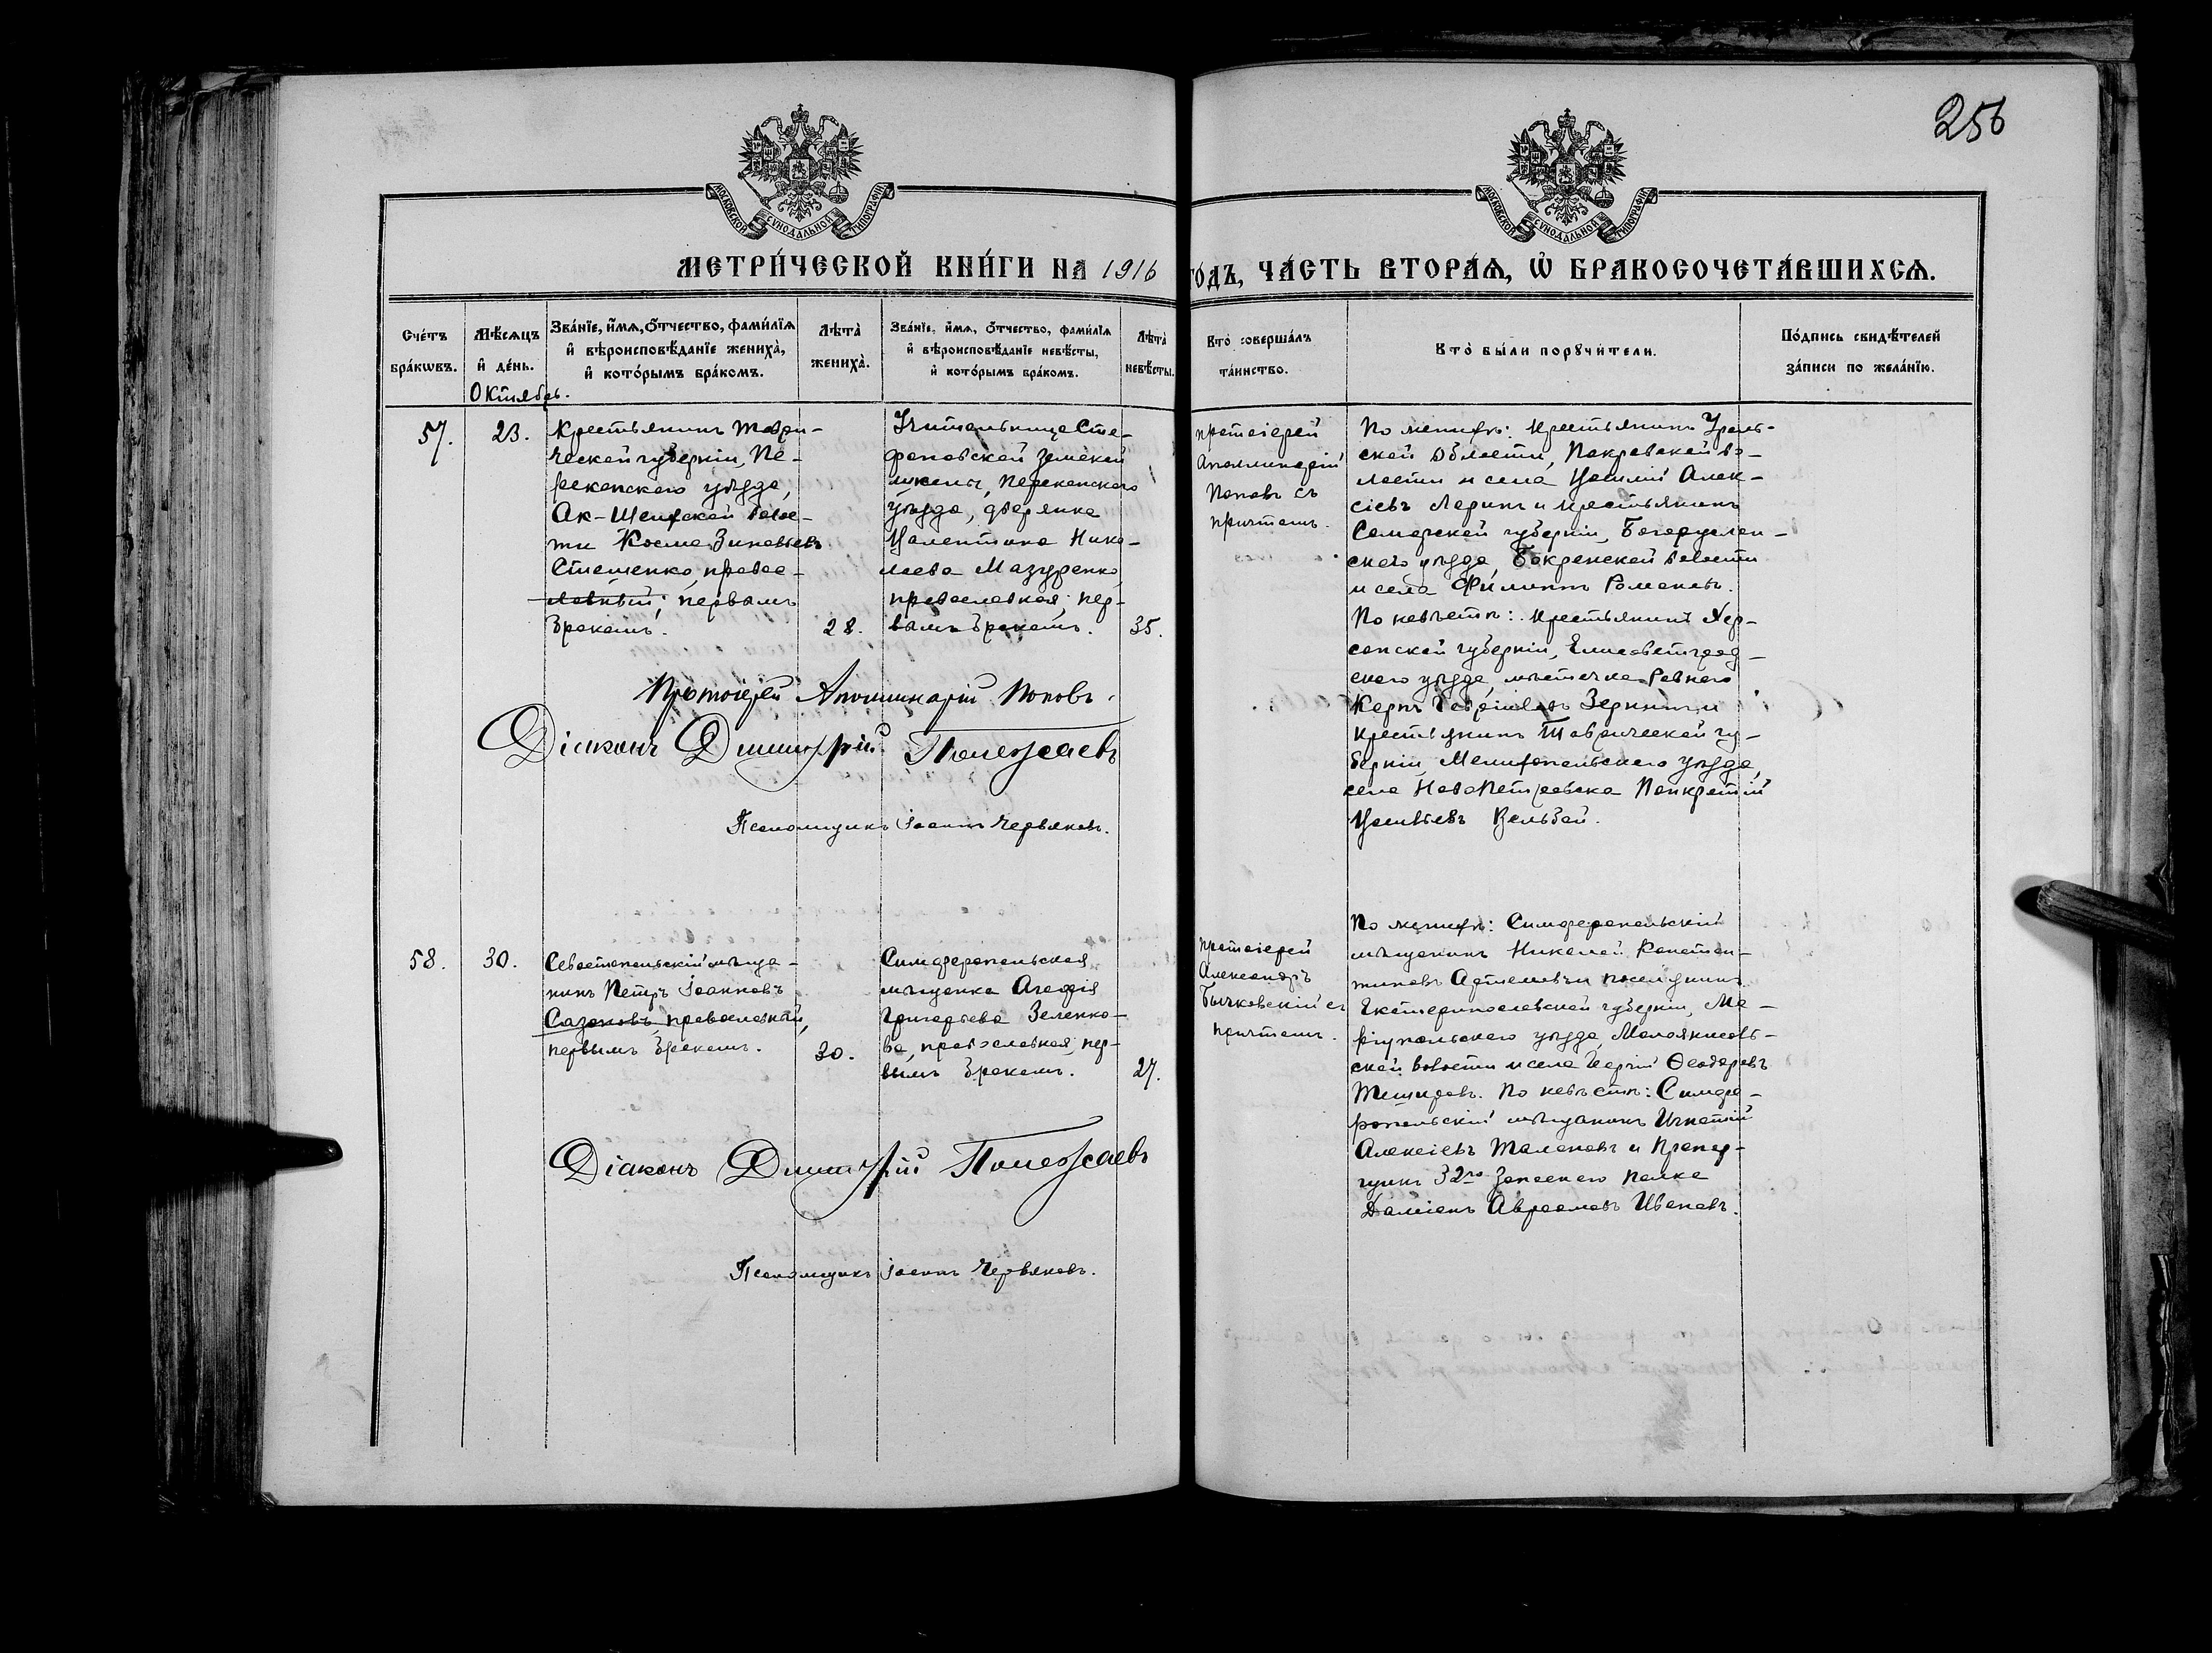 256
МОСКОВСКОЙ СѴНОДАЛЬНОЙ ТИПОГРАФІИ
МОСКОВСКОЙ СѴНОДАЛЬНОЙ ТИПОГРАФІИ
МЕТРИ́ЧЕСКОЙ КНИ́ГИ НА 1916
ГО́ДЪ, ЧА́СТЬ ВТОРА́Ѧ, Ѽ БРАКОСОЧЕТА́ВШИХСѦ.
Сче́тъ бра́кѡвъ.
Мѣ́сѧцъ и҆ де́нь.
Зва́нїе, и҆́мѧ, ѻ҆́тчество, фами́лїѧ и҆ вѣроисповѣ́данїе жениха̀, и҆ кото́рымъ бра́комъ.
Лѣта̀ жениха̀.
Зва́нїе, и҆́мѧ, ѻ҆́тчество, фами́лїѧ и҆ вѣроисповѣ́данїе невѣ́сты, и҆ кото́рымъ бра́комъ.
Лѣта̀ невѣ́сты.
Кто̀ соверша́лъ та́инство.
Кто̀ бы́ли порꙋчи́тели.
По́дпись свидѣ́телей за́писи по жела́нїю.
Октябрь.
57.
23.
Крестьянинъ Таври-
ческой губерніи, Пе-
рекопскаго уѣзда,
Ак-Шеихской волос-
ти Косма Зиновьевъ
Стешенко, правос-
лавный; первымъ
бракомъ.
28.
Учительница Сте-
фановской земской
школы, Перекопскаго
уѣзда, дворянка
Валентина Нико-
лаева Мазуренко,
православная, пер-
вымъ бракомъ.
35.
Протоіерей
Аполлинарій
Поповъ съ
причтомъ.
По женихѣ: Крестьянинъ Ураль-
ской области, Покровской во-
лости и села Василій Алек-
сіевъ Ларинъ и крестьянинъ
Самарской губерніи, Богоруслан-
скаго уѣзда, волости
и села Филиппъ Романовъ.
По невѣстѣ: Крестьянинъ Хер-
сонской губерніи, Елисаветград-
скаго уѣзда, мѣстечка Ровнаго
Карпъ Гавріиловъ и
крестьянинъ Таврической гу-
берніи, Мелитопольскаго уѣзда,
села НовоПетровска Панкратій
Васильевъ Вельбой.
Протоіерей Аполлинарій Поповъ.
Діаконъ Димитрій Полежаевъ
Псаломщикъ Іоаннъ Червяковъ.
58.
30.
Севастопольскій мѣща-
нинъ Петръ Іоанновъ
Сазоновъ, православный,
первымъ бракомъ.
30.
Симферопольская
мѣщанка Агафія
Григорьева Зеленко-
ва, православная, пер-
вымъ бракомъ.
27.
Протоіерей
Александръ
Бычковскій съ
причтомъ.
По женихѣ: Симферопольскій
мѣщанинъ Николай Констан-
тиновъ и поселянинъ
Екатеринославской губерніи, Ма-
ріупольскаго уѣзда, Малоянисоль-
ской волости и села Георгій Ѳеодоровъ
По невѣстѣ: Симфе-
ропольскій мѣщанинъ Игнатій
Алексіевъ Талановъ и Прапор-
щикъ 32го Запаснаго полка
Даміанъ Авраамовъ Ивановъ.
Діаконъ Димитрій Полежаевъ
Псаломщикъ Іоаннъ Червяковъ.